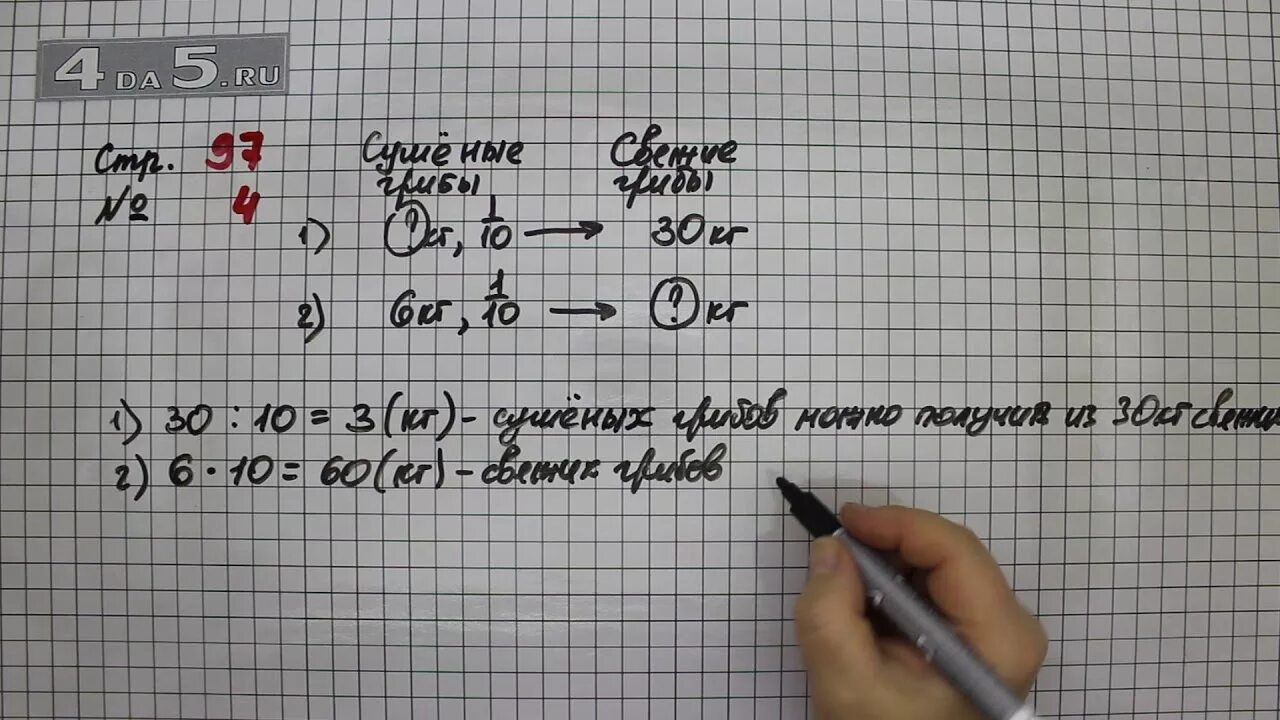 4DA5.RU
Стр. 97
№ 4
Сушёные грибы
Свежие грибы
1) ? кг, 1/10 → 30 кг
2) 6 кг, 1/10 → ? кг
1) 30 : 10 = 3 (кг) - сушёных грибов можно получить из 30 кг
2) 6 · 10 = 60 (кг) - свежих грибов